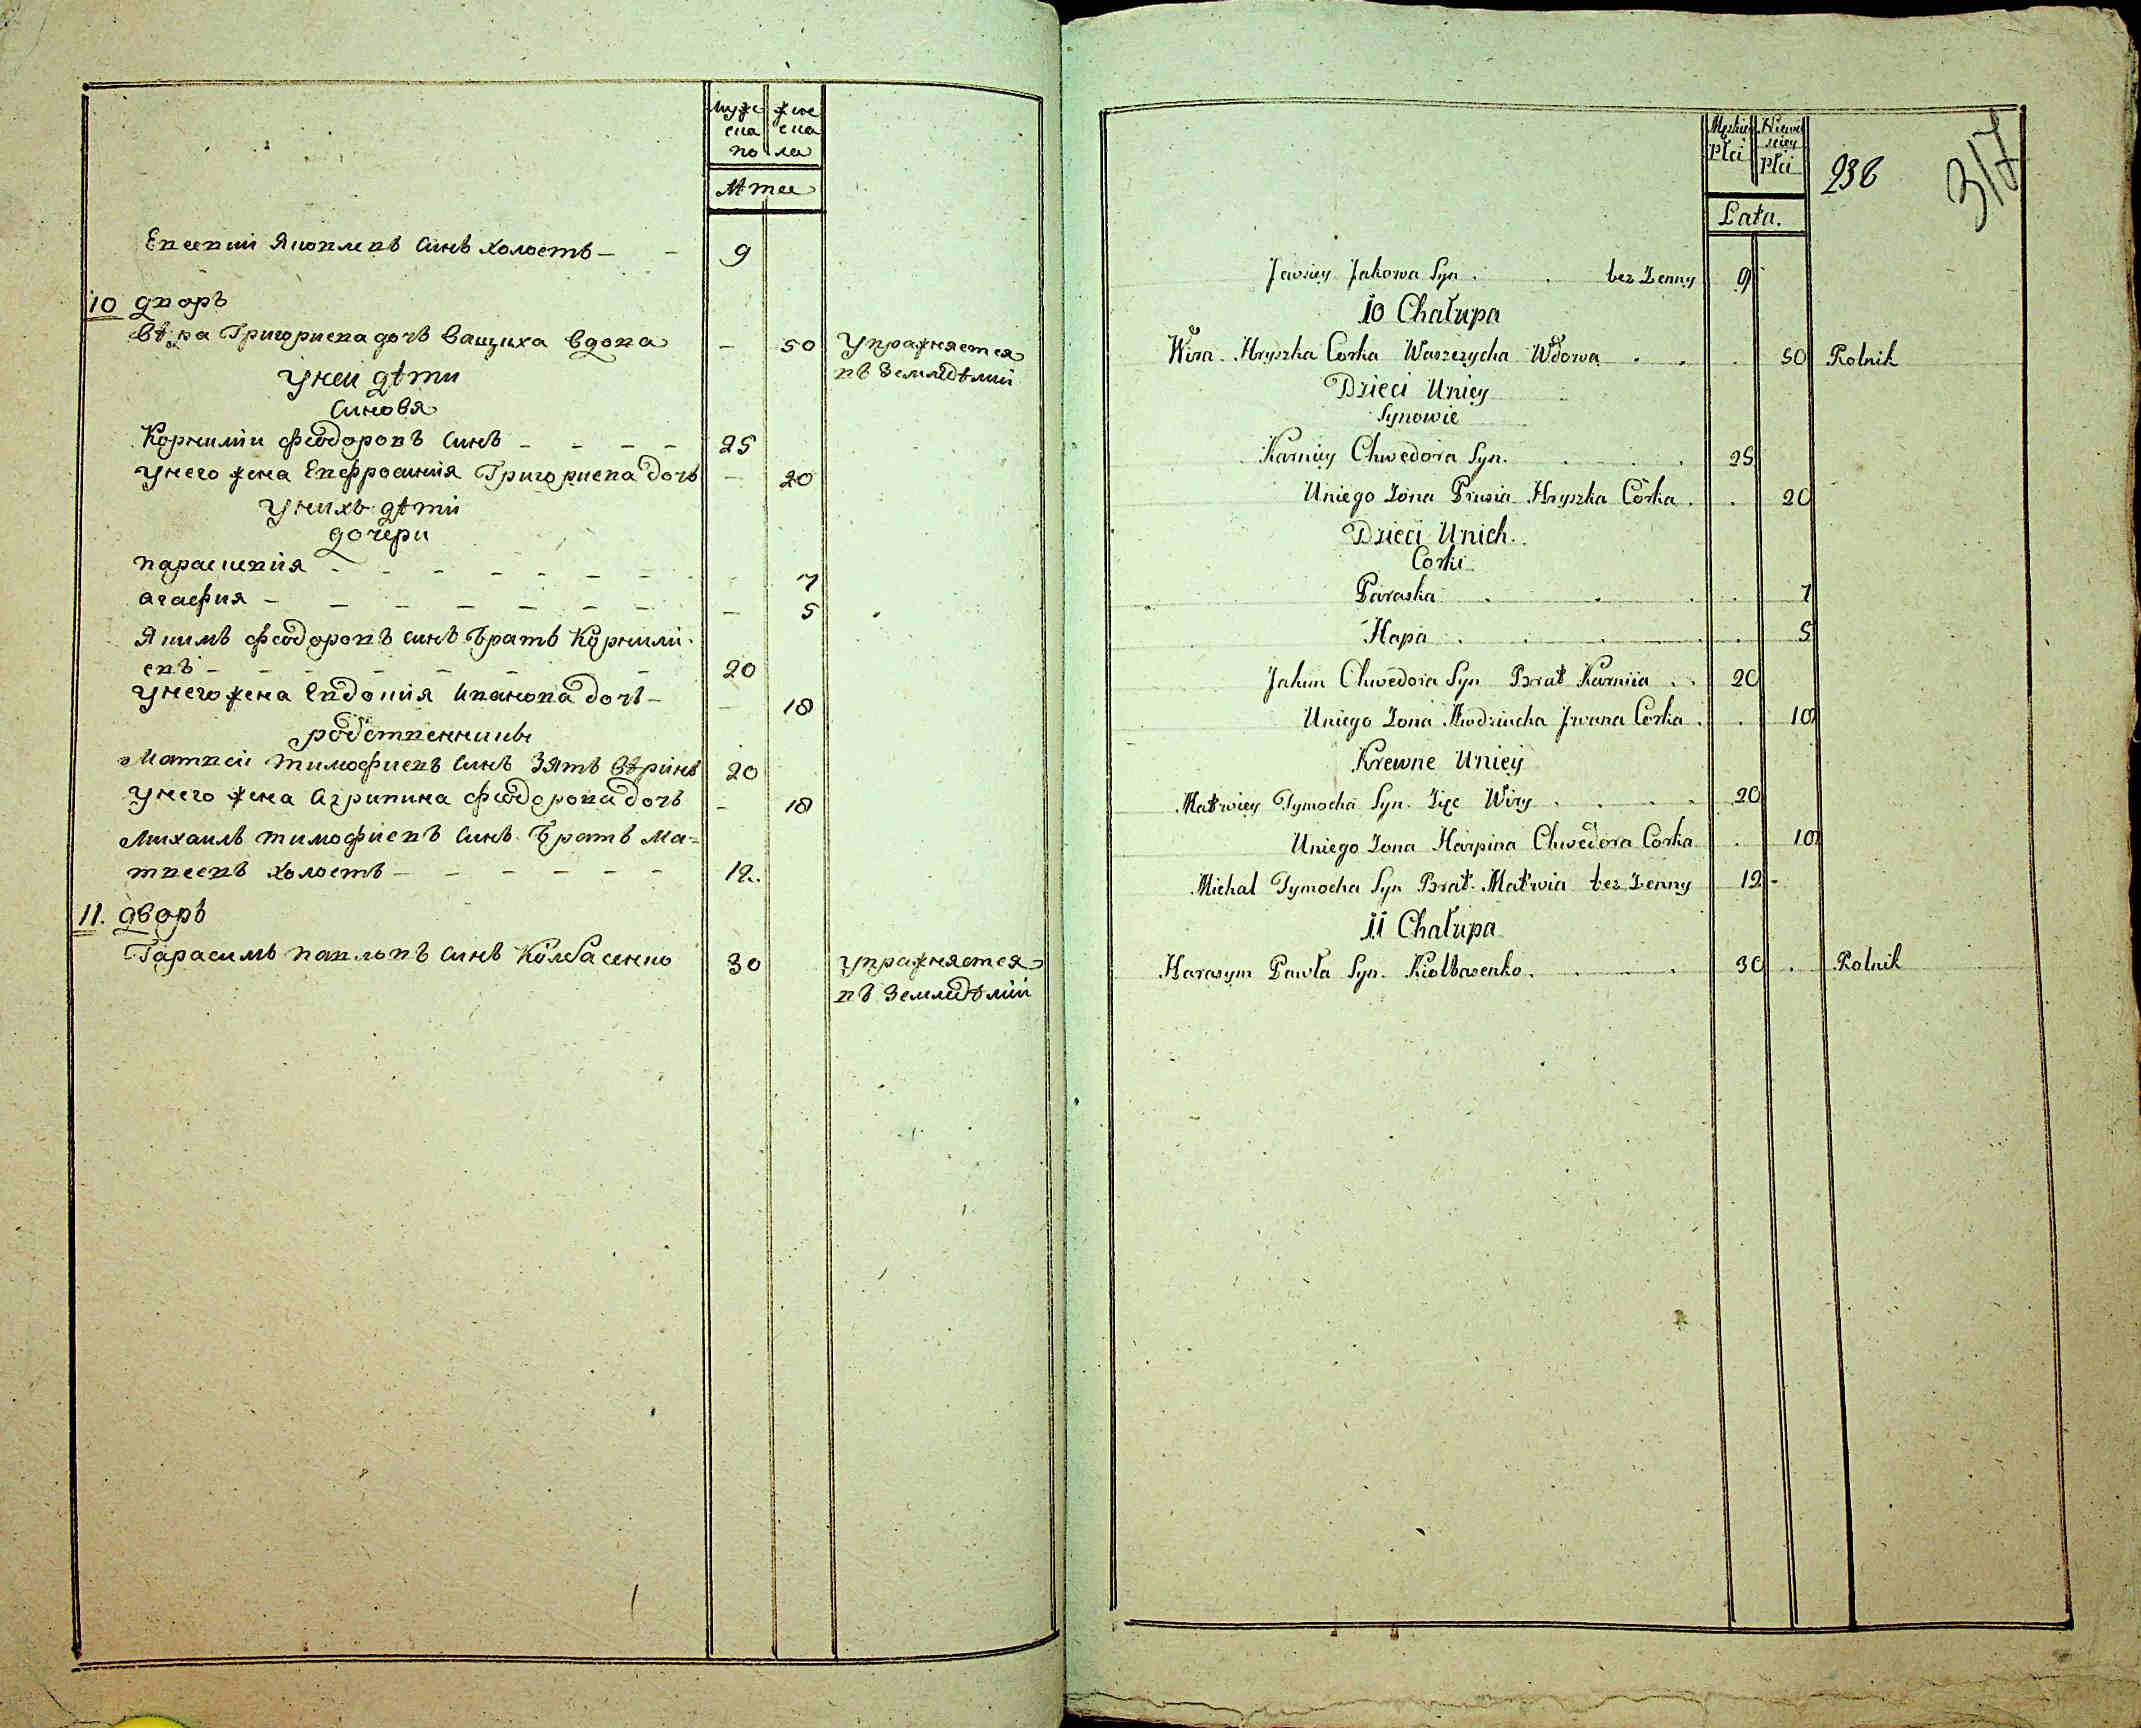 муже жене
ска ска
по ла
Лѣтъ
Евсеиій Яковлевъ синъ холостъ — — 9
10 дворъ
Вѣра Григориева дочь Ващиха вдова — 50 Упражняется
въ Земледѣліи
У неи дѣти
Синовя
Корнилии Феодоровъ синъ — — — — 25
У него жена Евфросинія Григориева дочь — 20
У нихъ дѣти
дочери
Параскевия — — — — — — — 7
Агафия — — — — — — — — 5
Якимъ Феодоровъ синъ братъ Корнили-
евъ — — — — — — — 20
У него жена Евдокия Иванова дочь — — 18
родственники
Матвей Тимофиевъ синъ Зять Вѣринъ 20
У него жена Агрипина Феодорова дочь — 18
Михаилъ Тимофиевъ синъ братъ Ма-
твеевъ холостъ — — — — — 12.
11. дворъ
Гарасимъ Павловъ синъ Колбасенко 30 Упражняется
въ Земледѣліи
Męskiey Niewie
sciey
Płci Płci
236
317
Lata.
Jewsiey Jakowa Syn . . bez Zenny 9
10 Chałupa
Wira Hryszka Corka Waszczycha Wdowa . . . 50 Rolnik
Dzieci Uniey
Synowie
Karniey Chwedora Syn. . . . . 25
Uniego Zona Prusia Hryszka Corka . . 20
Dzieci Unich.
Corki
Paraska . . . . 7
Hapa . . . . . 5
Jakim Chwedora Syn Brat Karniia . . 20
Uniego Zona Jwana Corka . . 18
Krewne Uniey
Matwiey Tymocha Syn. Zięc Wiry . . . . 20
Uniego Zona Harpina Chwedora Corka . 18
Michal Tymocha Syn Brat Matwia bez Zenny 12 -
11 Chałupa
Harasym Pawła Syn. Kiołbasenko . . . 30 . Rolnik